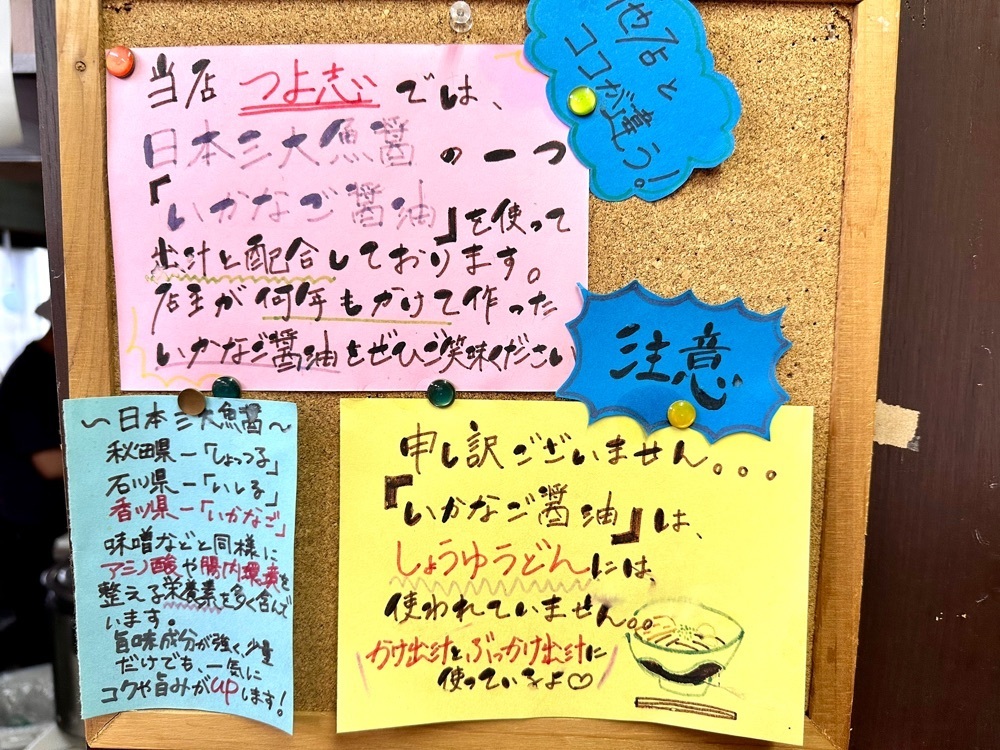 他店と
ココが違う!
当店 つよ志 では、
日本三大魚醤 の一つ
『いかなご醤油』を使って
出汁と配合しております。
店主が何年もかけて作った
いかなご醤油をぜひご笑味ください
注意
〜日本三大魚醤〜
秋田県ー「しょっつる」
石川県ー「いしる」
香川県ー「いかなご」
味噌などと同様に
アミノ酸や腸内環境を
整える栄養素を多く含んで
います。
旨味成分が強く、少量
だけでも、一気に
コクや旨みがupします!
申し訳ございません。。。
『いかなご醤油』は、
しょうゆうどんには、
使われていません。。。
かけ出汁とぶっかけ出汁に
使っているよ♡